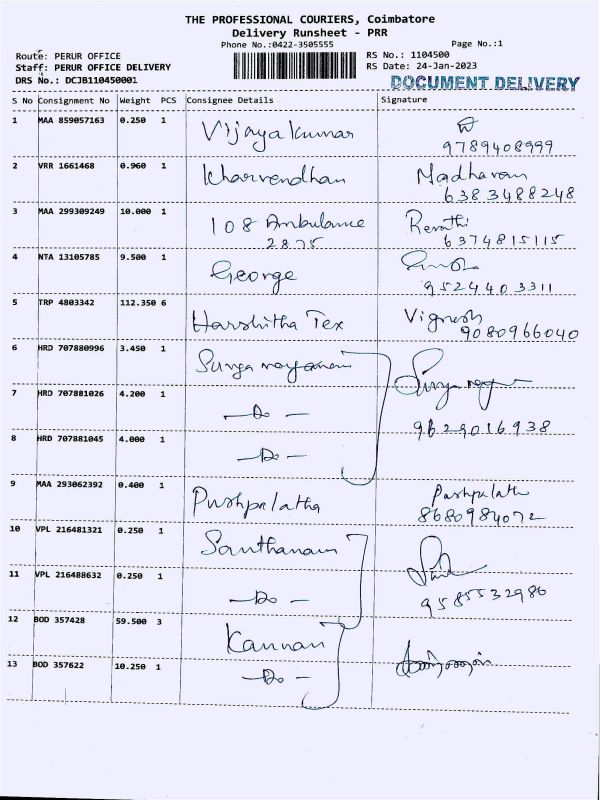 THE PROFESSIONAL COURIERS, Coimbatore
Delivery Runsheet - PRR
Phone No.:0422-3505555
Page No.:1
Route: PERUR OFFICE
RS No.: 1104500
Staff: PERUR OFFICE DELIVERY
RS Date: 24-Jan-2023
DRS No.: DCJB110450001
DOCUMENT DELIVERY
S No Consignment No Weight PCS Consignee Details Signature
1 MAA 859057163 0.250 1 Vijayakumar
9789408999
2 VRR 1661468 0.960 1 Kharvendhan Madhavan
6383488248
3 MAA 299309249 10.000 1 108 Ambulance Revathi
2875 6374815115
4 NTA 13105785 9.500 1 George
9524403311
5 TRP 4803342 112.350 6 Harshitha Tex Vignesh
9080966040
6 HRD 707880996 3.450 1
7 HRD 707881026 4.200 1 - Do -
9629016938
8 HRD 707881045 4.000 1 - Do -
9 MAA 293062392 0.400 1 Pushpalatha Pushpalath
8680984072
10 VPL 216481321 0.250 1 Santhanam
11 VPL 216488632 0.250 1 - Do -
9585532986
12 BOD 357428 59.500 3 Kannan
13 BOD 357622 10.250 1 - Do -